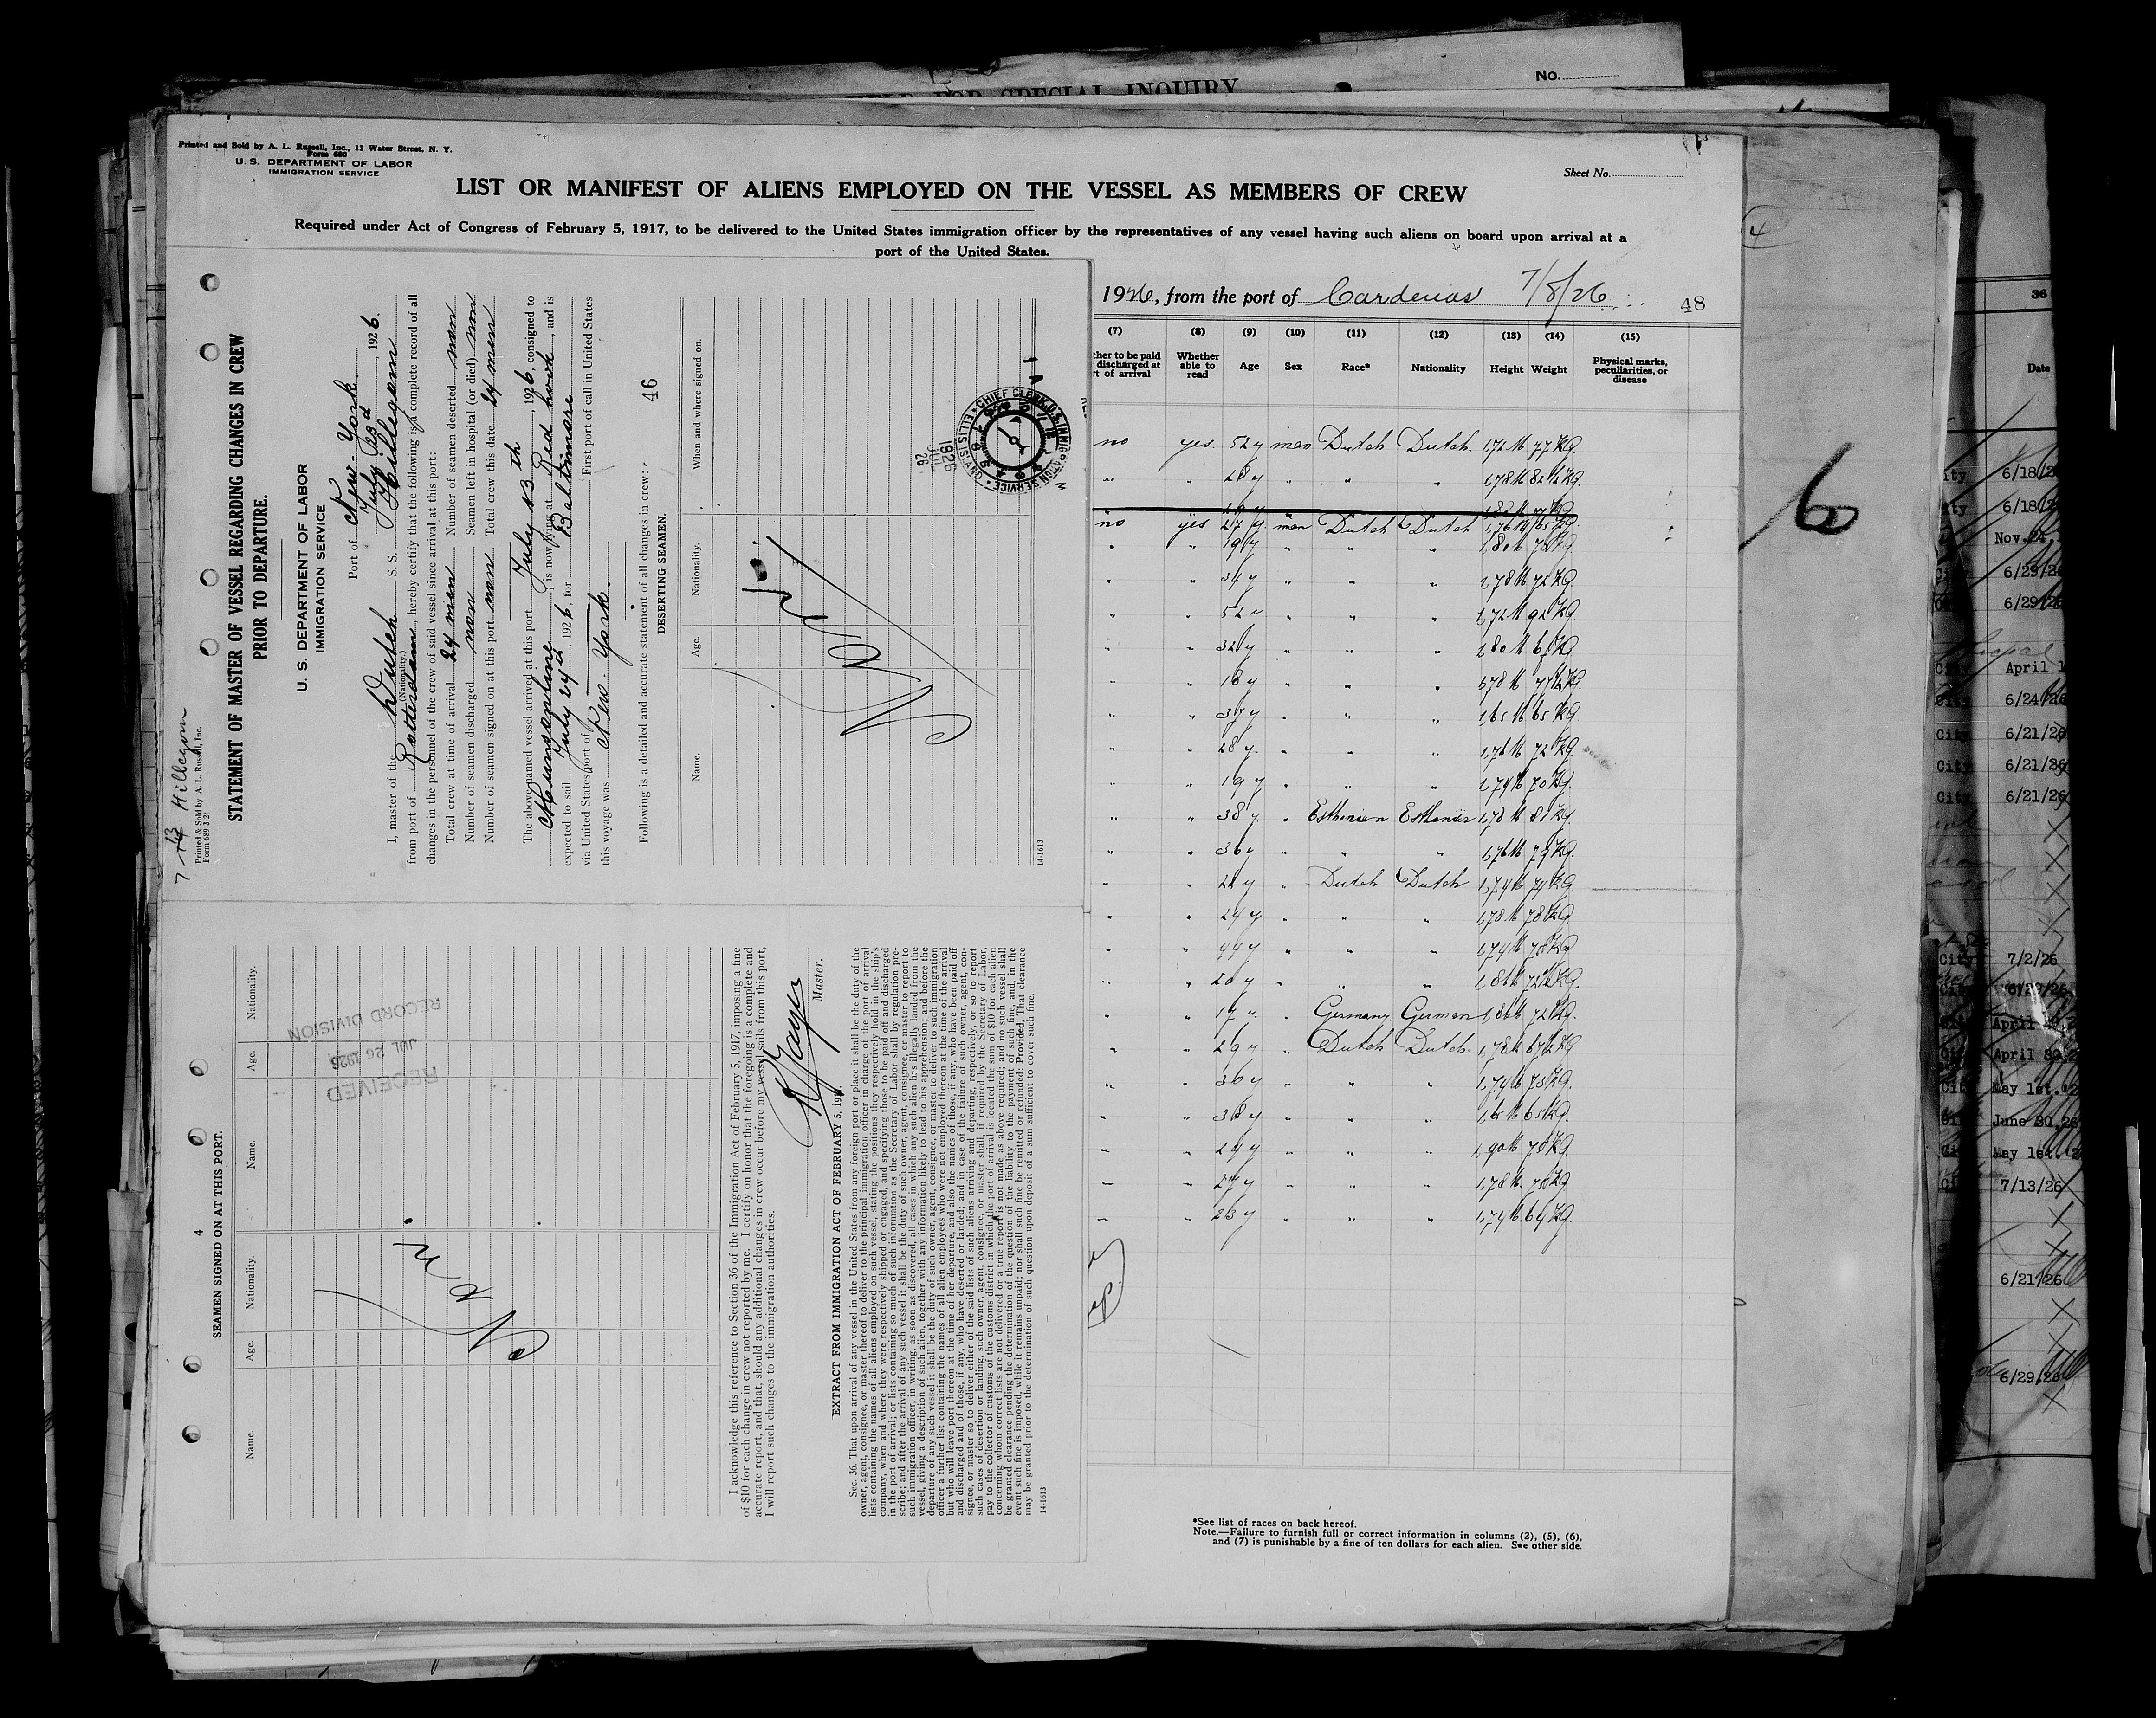 No.
FOR SPECIAL INQUIRY
Printed and Sold by A. L. Russell, Inc., 13 Water Street, N. Y.
Form 680
U. S. DEPARTMENT OF LABOR
IMMIGRATION SERVICE
Sheet No.
LIST OR MANIFEST OF ALIENS EMPLOYED ON THE VESSEL AS MEMBERS OF CREW
Required under Act of Congress of February 5, 1917, to be delivered to the United States immigration officer by the representatives of any vessel having such aliens on board upon arrival at a
port of the United States.
1926, from the port of Cardenas 7/8/26
48
(7) (8) (9) (10) (11) (12) (13) (14) (15)
ther to be paid discharged at rt of arrival
Whether able to read
Age
Sex
Race*
Nationality
Height
Weight
Physical marks, peculiarities, or disease
no yes. 52 y man Dutch Dutch. 1,72 M 77 KG.
" " 28 y " " " 1,78 M 82½ KG.
no yes 27 y. man Dutch Dutch 1,76 M 65 KG
" " 19 y " " " 1,80 M 70 KG.
" " 34 y " " " 1,78 M 72 KG
" " 52 " " " " 1,72 M 92 KG
" " 32 y " " "
" " 18 y " " "
" " 37 y " " " 1,65 M 65 KG
" " 28 y. " " " 72 KG.
" " 19 y " " " 1,74 M 70 KG
" " 38 y. " Esthonien
" " 36 y " " " 1,76 M 79 KG.
" " 22 y " Dutch Dutch 1,74 M 74 KG
" " 24 y " " " 1,78 M 78 KG.
" " 44 y " " " 1,74 M 78 KG
" " 20 y " " "
" " 17 " " Germany. German 72 KG.
" " 29 y " Dutch Dutch. 1,78 M 67½ KG
" " 36 y " " " 1,74 M 75 KG.
" " 38 y " " " 65 KG.
" " 29 y " " " 1,90 M 78 KG.
" " 27 y " " " 1,78 M. 78 KG
" " 23 y " " " 1,74 M. 64 KG.
*See list of races on back hereof.
Note.—Failure to furnish full or correct information in columns (2), (5), (6),
and (7) is punishable by a fine of ten dollars for each alien. See other side.
7-13 Hillegom
Printed & Sold by A. L. Russell, Inc.
Form 689-3-24
STATEMENT OF MASTER OF VESSEL REGARDING CHANGES IN CREW
PRIOR TO DEPARTURE.
U. S. DEPARTMENT OF LABOR
IMMIGRATION SERVICE
Port of New-York.
July 23d, 1926.
I, master of the Dutch S. S. Hillegom
(Nationality.)
from port of Rotterdam, hereby certify that the following is a complete record of all
changes in the personnel of the crew of said vessel since arrival at this port:
Total crew at time of arrival 24 men Number of seamen deserted non
Number of seamen discharged non Seamen left in hospital (or died) non
Number of seamen signed on at this port non Total crew this date 24 men
The above named vessel arrived at this port July 13th, 1926, consigned to
Munsonline, is now lying at Red hook, and is
expected to sail July 24th, 1926, for Baltimore
via United States port of First port of call in United States
this voyage was New-York.
Following is a detailed and accurate statement of all changes in crew:
46
DESERTING SEAMEN.
Name. Age. Nationality. When and where signed on.
Non
14-1613
CHIEF CLERK, U.S. IMMIGRATION SERVICE
ELLIS ISLAND
1926
JUL
26
4
SEAMEN SIGNED ON AT THIS PORT.
Name. Age. Nationality. Name. Age. Nationality.
Non.
RECEIVED
JUL 26 1926
RECORD DIVISION
I acknowledge this reference to Section 36 of the Immigration Act of February 5, 1917, imposing a fine
of $10 for each change in crew not reported by me. I certify on honor that the foregoing is a complete and
accurate report, and that, should any additional changes in crew occur before my vessel sails from this port,
I will report such changes to the immigration authorities.
Master.
EXTRACT FROM IMMIGRATION ACT OF FEBRUARY 5, 1917.
Sec. 36. That upon arrival of any vessel in the United States from any foreign port or place it shall be the duty of the
owner, agent, consignee, or master thereof to deliver to the principal immigration officer in charge of the port of arrival
lists containing the names of all aliens employed on such vessel, stating the positions they respectively hold in the ship's
company, when and where they were respectively shipped or engaged, and specifying those to be paid off and discharged
in the port of arrival; or lists containing so much of such information as the Secretary of Labor shall by regulation pre-
scribe; and after the arrival of any such vessel it shall be the duty of such owner, agent, consignee, or master to report to
such immigration officer, in writing, as soon as discovered, all cases in which any such alien has illegally landed from the
vessel, giving a description of such alien, together with any information likely to lead to his apprehension; and before the
departure of any such vessel it shall be the duty of such owner, agent, consignee, or master to deliver to such immigration
officer a further list containing the names of all alien employees who were not employed thereon at the time of the arrival
but who will leave port thereon at the time of her departure, and also the names of those, if any, who have been paid off
and discharged and of those, if any, who have deserted or landed; and in case of the failure of such owner, agent, con-
signee, or master so to deliver either of the said lists of such aliens arriving and departing, respectively, or so to report
such cases of desertion or landing, such owner, agent, consignee, or master shall, if required by the Secretary of Labor,
pay to the collector of customs of the customs district in which the port of arrival is located the sum of $10 for each alien
concerning whom correct lists are not delivered or a true report is not made as above required; and no such vessel shall
be granted clearance pending the determination of the question of the liability to the payment of such fine, and, in the
event such fine is imposed, while it remains unpaid; nor shall such fine be remitted or refunded: Provided, That clearance
may be granted prior to the determination of such question upon deposit of a sum sufficient to cover such fine.
14-1613
4
6
36
Date
City 6/18/2
6/18/2
Nov. 24,
6/29/2
6/29/26
City April 1
City 6/24/26
City 6/21/26
City 6/21/26
City 6/21/26
City 7/2/26
City 6/29/26
April
April 30,2
May 1st.
June 30,26
May 1st.
7/13/26
6/21/26
6/29/26